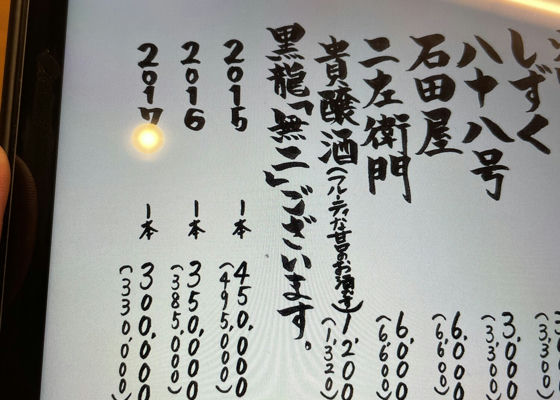 しずく
3,000
(3,300)
八十八号
6,000
(6,600)
石田屋
6,000
(6,600)
二左衛門
貴醸酒(フルーティな甘口のお酒です) 1,200
(1,320)
黒龍「無二」ございます。
2015 1本 450,000
(495,000)
2016 1本 350,000
(385,000)
2017 1本 300,000
(330,000)